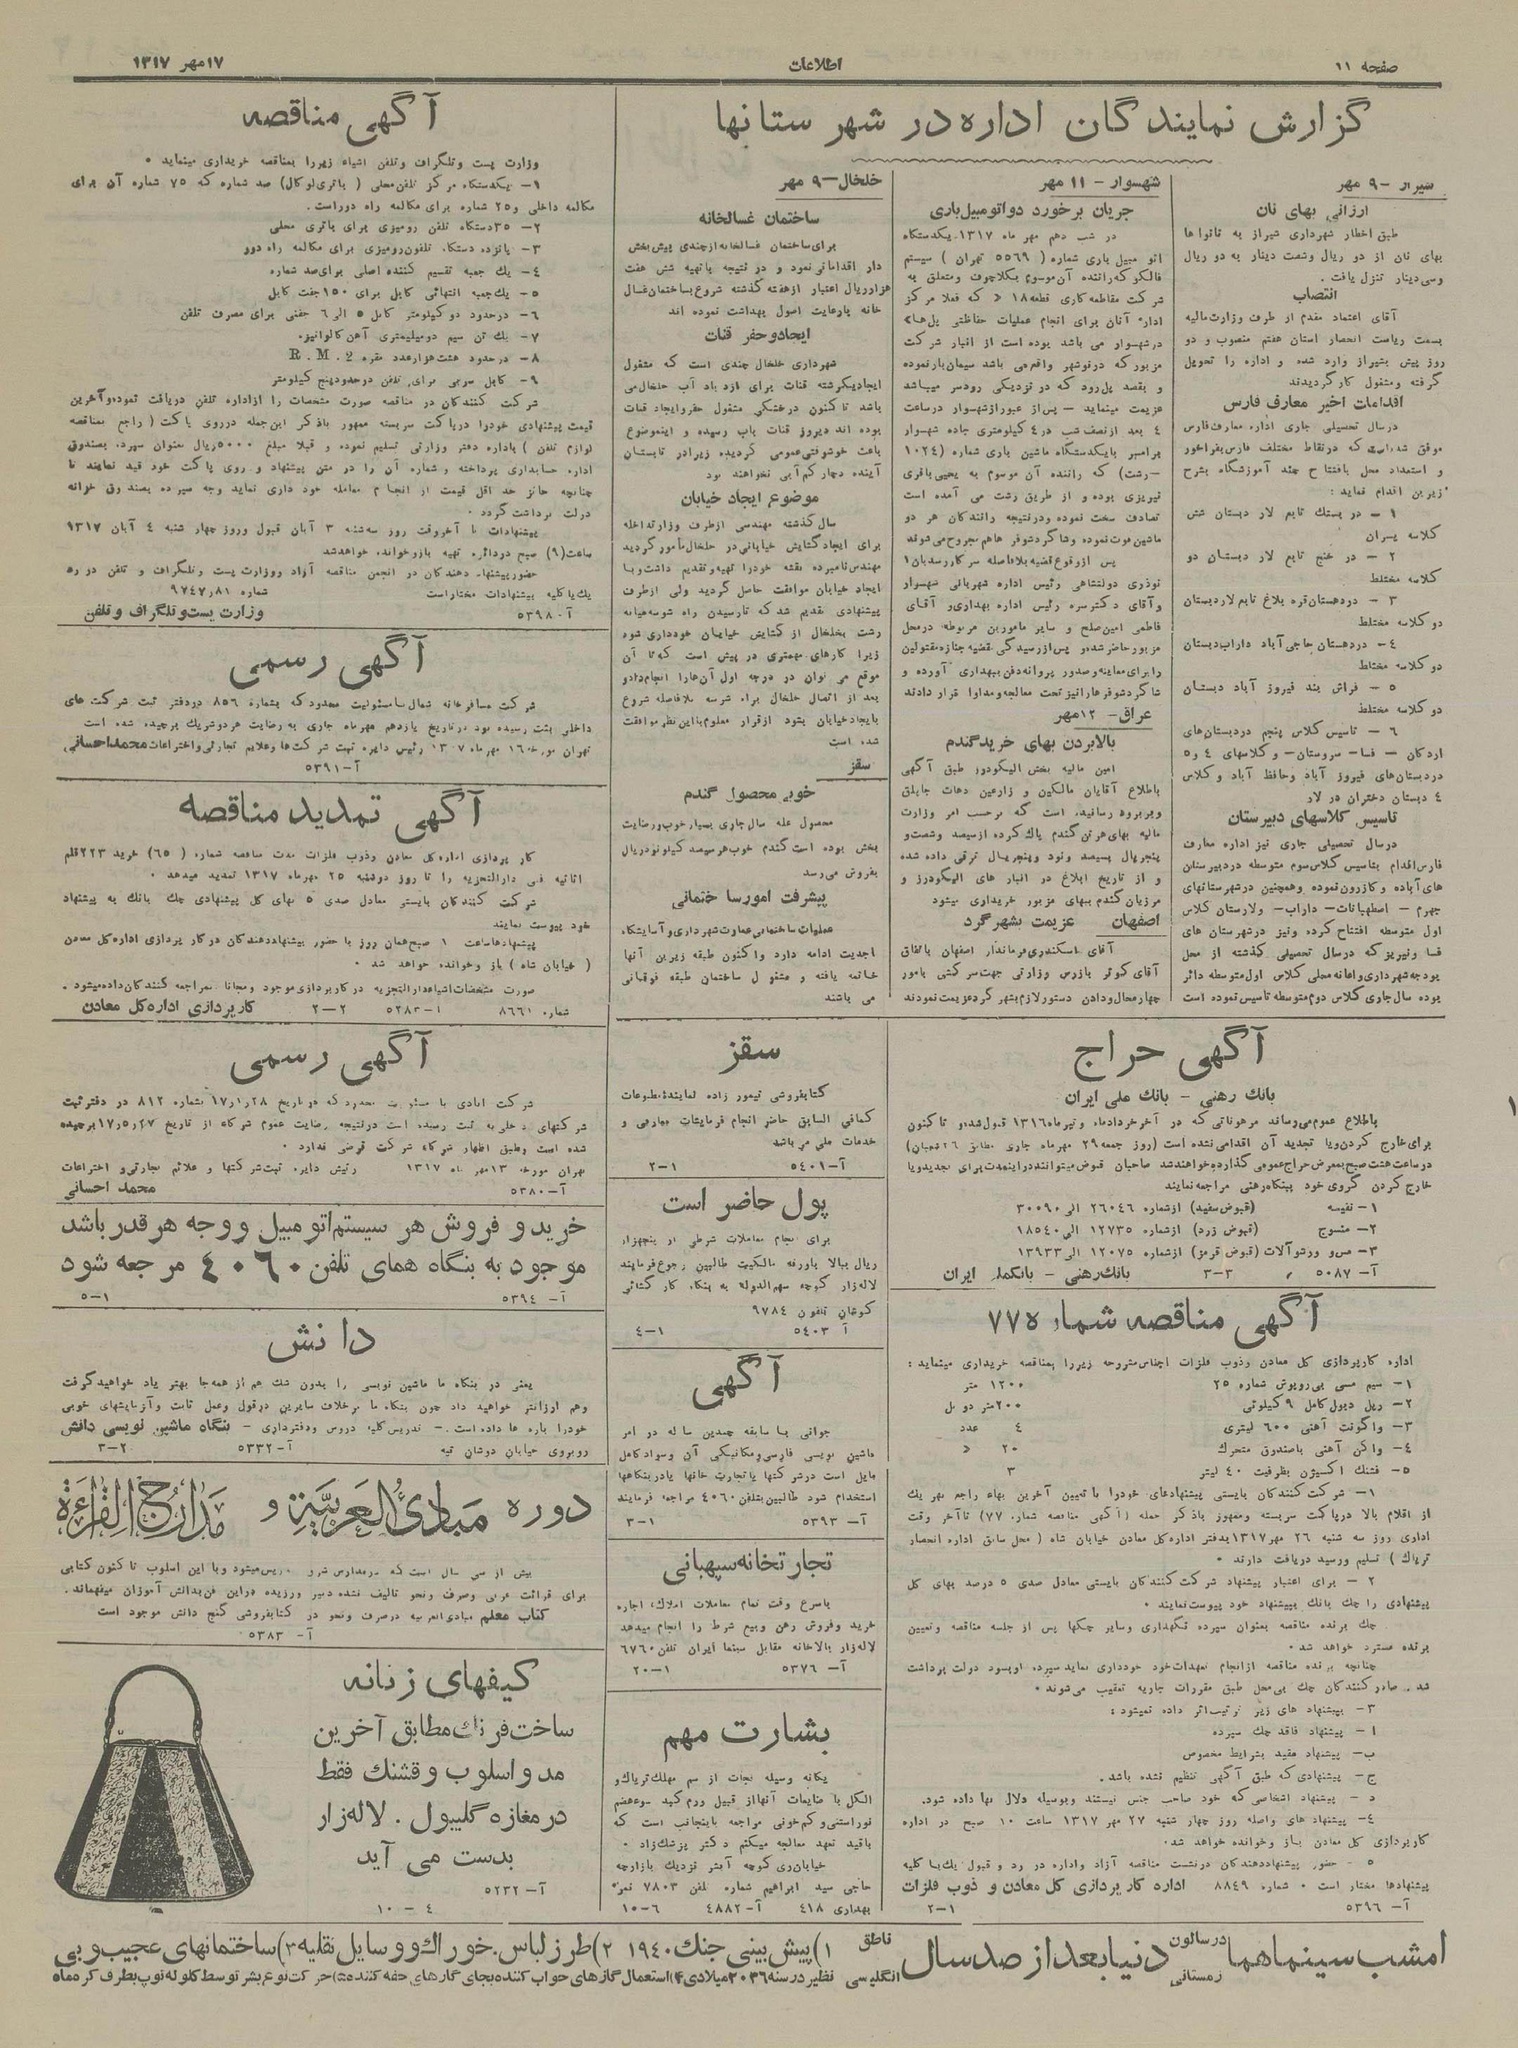 صفحه ۱۱
اطلاعات
۱۷ مهر ۱۳۱۷
گزارش نمایندگان اداره در شهرستانها
شیراز - ۹ مهر
ارزانی بهای نان
طبق اخطار شهرداری شیراز به نانواها
بهای نان از دو ریال وشصت دینار به دو ریال
وسی دینار تنزل یافت .
انتصاب
آقای اعتماد مقدم از طرف وزارت مالیه
بسمت ریاست انحصار استان هفتم منصوب و دو
روز پیش بشیراز وارد شده و اداره را تحویل
گرفته ومشغول کار گردیدند
اقدامات اخیر معارف فارس
درسال تحصیلی جاری اداره معارف فارس
موفق شده است که در نقاط مختلف فارس بفراخور
و استعداد محل بافتتاح چند آموزشگاه بشرح
زیرین اقدام نماید :
۱ – در بستك تابع لار دبستان شش
کلاسه پسران
۲ – در خنج تابع لار دبستان دو
کلاسه مختلط
۳ – در دهستان قره بلاغ تابع لار دبستان
دو کلاسه مختلط
۴ – در دهستان حاجی آباد داراب دبستان
دو کلاسه مختلط
۵ – فراش بند فیروز آباد دبستان
دو کلاسه مختلط
۶ – تاسیس کلاس پنجم در دبستان‌های
اردکان – فسا – سروستان – و کلاسهای ۴ و ۵
در دبستان‌های فیروز آباد وحافظ آباد و کلاس
۴ دبستان دختران در لار
تاسیس کلاسهای دبیرستان
درسال تحصیلی جاری نیز اداره معارف
فارس اقدام بتاسیس کلاس سوم متوسطه در دبیرستان
های آباده و کازرون نموده وهمچنین در شهرستانهای
جهرم – اصطهبانات – داراب – ولارستان کلاس
اول متوسطه افتتاح کرده ونیز در شهرستان های
فسا ونیریز که درسال تحصیلی گذشته از محل
بودجه شهرداری واعانه محلی کلاس اول متوسطه دائر
بوده سال جاری کلاس دوم متوسطه تاسیس نموده است
شهسوار – ۱۱ مهر
جریان برخورد دو اتومبیل باری
در شب دهم مهر ماه ۱۳۱۷ یکدستگاه
اتو مبیل باری شماره ( ۵۵۶۹ تهران ) سیستم
شرکت مقاطعه کاری قطعه ۱۸ « که فعلا مرکز
اداره آنان برای انجام عملیات حفاظتی پل‌ها»
در شهسوار می باشد بوده است از انبار شرکت
مزبور که در نوشهر واقع می باشد سیمان بار نموده
و بقصد پل‌رود که در نزدیکی رودسر میباشد
عزیمت مینماید – پس از عبور از شهسوار در ساعت
۴ بعد از نصف شب در ۴ کیلومتری جاده شهسوار
برامسر بایکدستگاه ماشین باری شماره (۱۰۲۴
– رشت) که راننده آن موسوم به یحیی باقری
تبریزی بوده و از طریق رشت می آمده است
تصادف سخت نموده ودر نتیجه رانندگان هر دو
ماشین فوت نموده وشاگرد شوفر ها هم مجروح می‌شوند
شاگرد شوفرها را نیز تحت معالجه و مداوا قرار دادند
عراق – ۱۲ مهر
بالابردن بهای خرید گندم
امین مالیه بخش الیگودرز طبق آگهی
باطلاع آقایان مالکین و زارعین دهات جاپلق
وبربرود رسانیده است که برحسب امر وزارت
مالیه بهای هرتن گندم پاك کرده از سیصد وشصت و
پنجریال بسیصد ونود وپنجریال ترقی داده شده
و از تاریخ ابلاغ در انبار های الیگودرز و
مرزیان گندم ببهای مزبور خریداری میشود
اصفهان
عزیمت بشهر گرد
آقای اسکندری فرماندار اصفهان باتفاق
آقای کوثر بازرس وزارتی جهت سرکشی بامور
چهارمحال ودادن دستور لازم بشهر گرد عزیمت نمودند
خلخال – ۹ مهر
ساختمان غسالخانه
برای ساختمان غسالخانه از چندی پیش بخش
دار اقداماتی نمود و در نتیجه باتهیه شش هفت
هزار ریال اعتبار از هفته گذشته شروع بساختمان غسال
خانه بارعایت اصول بهداشت نموده اند
ایجاد و حفر قنات
شهرداری خلخال چندی است که مشغول
ایجاد یکرشته قنات برای ازدیاد آب خلخال می
باشد تاکنون در خشکی مشغول حفر وایجاد قنات
بوده اند دیروز قنات بآب رسیده و اینموضوع
باعث خوشوقتی عمومی گردیده زیرا در تابستان
آینده دچار کم آبی نخواهند بود
موضوع ایجاد خیابان
سال گذشته مهندسی از طرف وزارت داخله
برای ایجاد گشایش خیابانی در خلخال مأمور گردید
مهندس نامبرده نقشه خود را تهیه وتقدیم داشت و با
ایجاد خیابان موافقت حاصل گردید ولی از طرف
پیشنهادی تقدیم شد که تا رسیدن راه شوسه میانه
رشت بخلخال از گشایش خیابان خودداری شود
زیرا کارهای مهمتری در پیش است که تا آن
موقع می توان در درجه اول آن‌ها را انجام داد و
شده است
سقز
خوبی محصول گندم
محصول غله سال جاری بسیار خوب ورضایت
بخش بوده است گندم خوب هر سیصد کیلو نود ریال
بفروش می‌رسد
پیشرفت امور ساختمانی
عملیات ساختمانی عمارت شهرداری و آسایشگاه
باجدیت ادامه دارد واکنون طبقه زیرین آنها
خاتمه یافته و مشغول ساختمان طبقه فوقانی
می باشند
آگهی مناقصه
وزارت پست وتلگراف وتلفن اشیاء زیررا بمناقصه خریداری مینماید ٠
۱ – یکدستگاه مرکز تلفن محلی ( باتری لوکال) صد شماره که ۷۵ شماره آن برای
مکالمه داخلی و ۲۵ شماره برای مکالمه راه دوراست.
۲ – ۳۵ دستگاه تلفن رومیزی برای باتری محلی
۳ – پانزده دستگاه تلفون رومیزی برای مکالمه راه دور
۴ – یك جعبه تقسیم کننده اصلی برای صد شماره
۵ – یك جعبه انتهائی کابل برای ۱۵۰ جفت کابل
۶ – در حدود دو کیلومتر کابل ۵ الی ۶ جفتی برای مصرف تلفن
۷ – یك تن سیم دومیلیمتری آهن گالوانیزه
۸ – در حدود هشت هزار عدد مقره R. M. 2
۹ – کابل سربی برای تلفن در حدود پنج کیلومتر
شرکت کنندگان در مناقصه صورت مشخصات را از اداره تلفن دریافت نموده و آخرین
قیمت پیشنهادی خودرا در پاکت سربسته ممهور باذکر این جمله در روی پاکت ( راجع بمناقصه
لوازم تلفن ) باداره دفتر وزارتی تسلیم نموده و قبلا مبلغ ۵۰۰۰ ریال بعنوان سپرده بصندوق
اداره حسابداری پرداخته و شماره آن را در متن پیشنهاد و روی پاکت خود قید نمایند تا
چنانچه حائز حد اقل قیمت از انجام معامله خود داری نماید وجه سپرده بصندوق خزانه
دولت برداشت گردد ٠
پیشنهادات تا آخر وقت روز سه‌شنبه ۳ آبان قبول و روز چهار شنبه ۴ آبان ۱۳۱۷
ساعت (۹) صبح در دائره تهیه باز و خوانده خواهد شد
حضور پیشنهاد دهندگان در انجمن مناقصه آزاد ووزارت پست وتلگراف و تلفن در رد
یك یا کلیه پیشنهادات مختار است
شماره ۹۷۴۷٫۸۱
آ – ۵۳۹۸
وزارت پست و تلگراف و تلفن
آگهی رسمی
شرکت مسافرخانه شمال با مسئولیت محدود که بشماره ۸۵۶ در دفتر ثبت شرکت های
داخلی بثبت رسیده بود در تاریخ یازدهم مهرماه جاری به رضایت هر دو شریك برچیده شده است
محمد احسانی
آ – ۵۳۹۱
آگهی تمدید مناقصه
کار پردازی اداره کل معادن وذوب فلزات مدت مناقصه شماره ( ۶۵ ) خرید ۲۲۳ قلم
اثاثیه فنی دارالتجزیه را تا روز دوشنبه ۲۵ مهرماه ۱۳۱۷ تمدید میدهد ٠
شرکت کنندگان بایستی معادل صدی ۵ بهای کل پیشنهادی چك بانك به پیشنهاد
خود پیوست نمایند
( خیابان شاه ) باز وخوانده خواهد شد ٠
صورت مشخصات اشیاء دارالتجزیه در کارپردازی موجود ومجانا بمراجعه کنندگان داده میشود .
شماره ۸۶۶۱
آ – ۵۲۸۳
۲–۲
کارپردازی اداره کل معادن
آگهی حراج
بانك رهنی – بانك ملی ایران
باطلاع عموم می‌رساند مرهوناتی که در آخر خرداد ماه و تیرماه ۱۳۱۶ قبول شده و تا کنون
برای خارج کردن ویا تجدید آن اقدامی نشده است (روز جمعه ۲۹ مهرماه جاری مطابق ۲۶ شعبان)
در ساعت هشت صبح بمعرض حراج عمومی گذارده خواهد شد صاحبان قبوض میتوانند در اینمدت برای تجدید ویا
خارج کردن گروی خود ببنگاه رهنی مراجعه نمایند
۱ – نفیسه (قبوض سفید) از شماره ۲۶۰۴۶ الی ۳۰۰۹۰
۲ – منسوج (قبوض زرد) از شماره ۱۲۷۳۵ الی ۱۸۵۴۰
۳ – مس و ورشو آلات (قبوض قرمز) از شماره ۱۲۰۷۵ الی ۱۳۹۳۳
آ – ۵۰۸۷
۳–۳
بانك رهنی – بانك ملی ایران
سقز
کتابفروشی تیمور زاده نماینده مطبوعات
کمافی السابق حاضر انجام فرمایشات معارفی و
خدمات ملی می باشد
آ – ۵۴۰۱
۲–۱
آگهی رسمی
شده است وطبق اظهار شرکاء شرکت قرضی ندارد ٠
محمد احسانی
آ – ۵۳۸۰
پول حاضر است
برای انجام معاملات شرطی از پنجهزار
ریال ببالا باورقه مالکیت طالبین رجوع فرمایند
لاله‌زار کوچه سهم الدوله به بنگاه کار گشائی
کوشان تلفون ۹۷۸۴
آ ۵۴۰۳
۴–۱
خرید و فروش هر سیستم اتومبیل و وجه هر قدر باشد
موجود به بنگاه همای تلفن ۴۰۶۰ مرجعه شود
آ – ۵۳۹۴
۵–۱
آگهی مناقصه شماره ۷۷
اداره کارپردازی کل معادن وذوب فلزات اجناس مشروحه زیررا بمناقصه خریداری مینماید :
۱ – سیم مسی بی روپوش شماره ۲۵
۱۲۰۰ متر
۲ – ریل دبول کامل ۹ کیلوئی
۲۰۰ متر دوبل
۳ – واگونت آهنی ۶۰۰ لیتری
۴ عدد
۴ – واگن آهنی باصندوق متحرك
۲۰ «
۵ – فشنك اکسیژن بظرفیت ۴۰ لیتر
۳
۱ – شرکت کنندگان بایستی پیشنهادهای خودرا با تعیین آخرین بهاء راجع بهر یك
از اقلام بالا در پاکت سربسته وممهور باذکر جمله (آگهی مناقصه شماره ۷۷) تا آخر وقت
اداری روز سه شنبه ۲۶ مهر ۱۳۱۷ بدفتر اداره کل معادن خیابان شاه ( محل سابق اداره انحصار
تریاك ) تسلیم ورسید دریافت دارند ٠
۲ – برای اعتبار پیشنهاد شرکت کنندگان بایستی معادل صدی ۵ درصد بهای کل
پیشنهادی را چك بانك بپیشنهاد خود پیوست نمایند ٠
چك برنده مناقصه بعنوان سپرده نگهداری وسایر چکها پس از جلسه مناقصه وتعیین
برنده مسترد خواهد شد ٠
چنانچه برنده مناقصه از انجام تعهدات خود خودداری نماید سپرده اوبسود دولت برداشت
شده صادر کنندگان چك بی محل طبق مقررات جاریه تعقیب می‌شوند ٠
۳ – بپیشنهاد های زیر ترتیب اثر داده نمیشود :
ا – پیشنهاد فاقد چك سپرده
ب – پیشنهاد مقید بشرایط مخصوص
ج – پیشنهادی که طبق آگهی تنظیم نشده باشد .
د – پیشنهاد اشخاصی که خود صاحب جنس نیستند وبوسیله دلال بها داده شود.
۴ – پیشنهاد های واصله روز چهار شنبه ۲۷ مهر ۱۳۱۷ ساعت ۱۰ صبح در اداره
کارپردازی کل معادن باز وخوانده خواهد شد ٠
۵ – حضور پیشنهاددهندگان در نشست مناقصه آزاد واداره در رد و قبول یك یا کلیه
پیشنهادها مختار است ٠ شماره ۸۸۴۹
اداره کار پردازی کل معادن و ذوب فلزات
آ – ۵۳۹۶
۲–۱
آگهی
جوانی با سابقه چندین ساله در امر
ماشین نویسی فارسی و مکانیکی آن وسواد کامل
مایل است در شرکتها یا تجارت خانها یا در بنگاهها
استخدام شود طالبین بتلفن ۴۰۶۰ مراجعه فرمایند
آ – ۵۳۹۳
۳–۱
دانش
یعنی در بنگاه ما ماشین نویسی را بدون شك هم از همه جا بهتر یاد خواهید گرفت
وهم ارزانتر خواهید داد چون بنگاه ما برخلاف سایرین در قول وعمل ثابت وآزمایشهای خوبی
خودرا باره ها داده است. – تدریس کلیه دروس ودفترداری – بنگاه ماشین نویسی دانش
روبروی خیابان دوشان تپه
آ – ۵۳۳۲
۳–۲
تجارتخانه سپهبانی
باسرع وقت تمام معاملات املاك، اجاره
خرید وفروش رهن وبیع شرط را انجام میدهد
لاله‌زار بالاخانه مقابل سینما ایران تلفن ۶۷۶۰
آ – ۵۳۷۶
۲۰–۱
دوره مبادئ العربیة و مدارج القراءة
برای قرائت عربی وصرف ونحو تالیف نشده دبیر ورزیده در این فن بدانش آموزان میفهماند .
کتاب معلم مبادی العربیه در صرف ونحو در کتابفروشی گنج دانش موجود است
آ – ۵۳۸۳
بشارت مهم
یگانه وسیله نجات از سم مهلك تریاك و
الکل با ضایعات آنها از قبیل ورم کبد سوء هضم
نوراستنی و کم خونی مراجعه باینجانب است که
باقید تعهد معالجه میکنم دکتر پزشك زاد ٠
خیابان ری کوچه آبشر نزدیك بازارچه
حاجی سید ابراهیم شماره تلفن ۷۸۰۳ نمره
بهداری ۴۱۸
آ – ۴۸۸۲
۱۰–۶
کیفهای زنانه
ساخت فرنك مطابق آخرین
مد و اسلوب و قشنك فقط
در مغازه گلیبول . لاله‌زار
بدست می آید
آ – ۵۲۳۲
۱۰ – ۴
امشب سینما هما در سالون زمستانی دنیا بعد از صد سال ناطق انگلیسی
۱) پیش بینی جنك ۱۹۴۰ ۲) طرز لباس. خوراك و وسایل نقلیه ۳) ساختمانهای عجیب و بی
نظیر در سنه ۲۰۳۶ میلادی ۴) استعمال گازهای خواب کننده بجای گازهای خفه کننده ۵) حرکت نوع بشر توسط گلوله توپ بطرف کره ماه